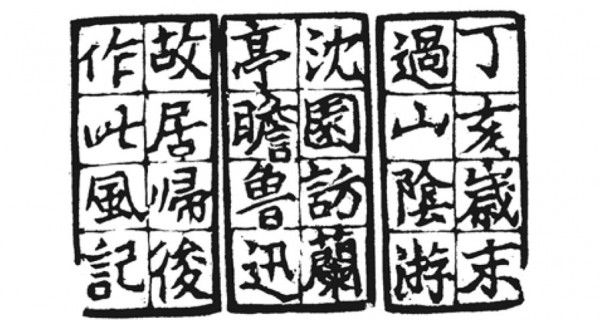 丁亥歲末
過山陰游
沈園訪蘭
亭瞻魯迅
故居帰後
作此風記